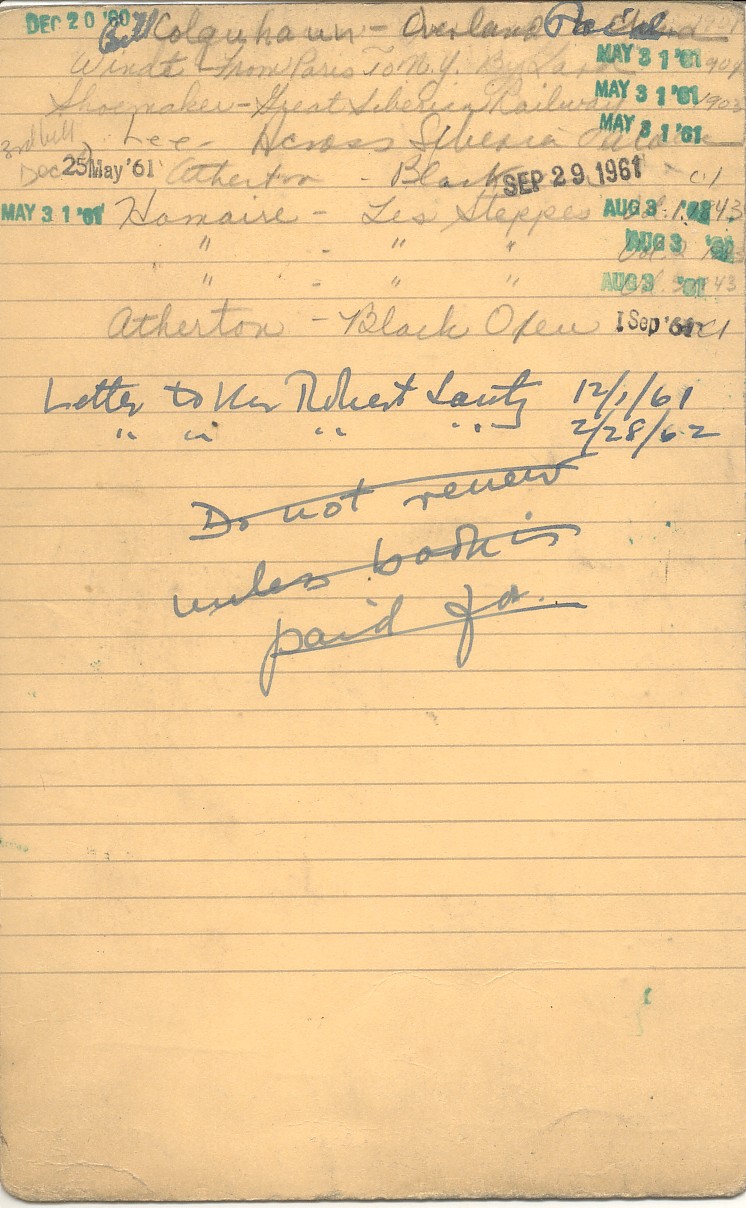 DEC 20 '60 Bill Colquhaun - Overland
Windt - From Paris To N.Y. By Land MAY 31 '61 1904
Shoemaker - Great Siberian Railway MAY 31 '61 1903
3rd bill Lee - Across Siberia MAY 31 '61
Dec 25 May '61 Atherton - Black SEP 29 1961
MAY 31 '61 Homaire - Les Steppes AUG 3 '61 43
" - " " AUG 3 '61
" - " " AUG 3 '61 43
Atherton - Black Oxen 1 Sep '61
Letter to Robert Lantz 12/1/61
" " " " 2/28/62
Do not renew
unless book is
paid for.